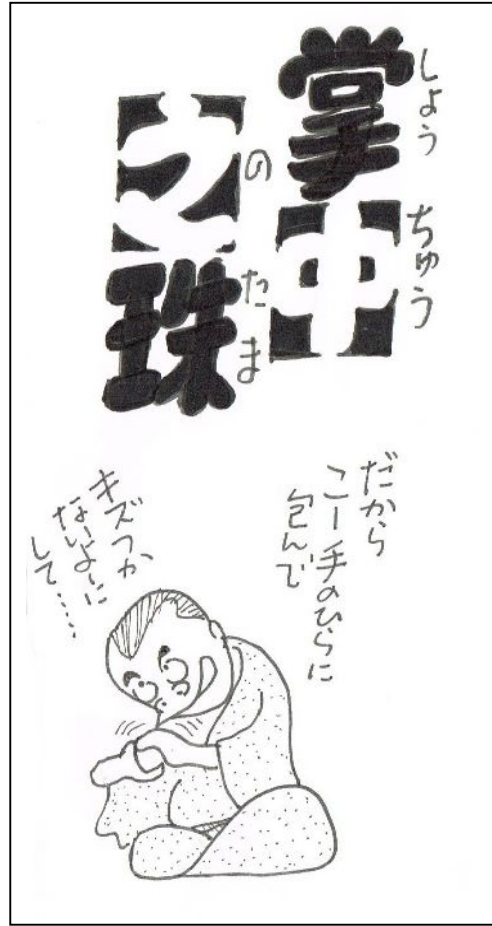 掌中
しょうちゅう
之珠
のたま
だから
こー手のひらに
包んで
キズつか
ないよーに
して……